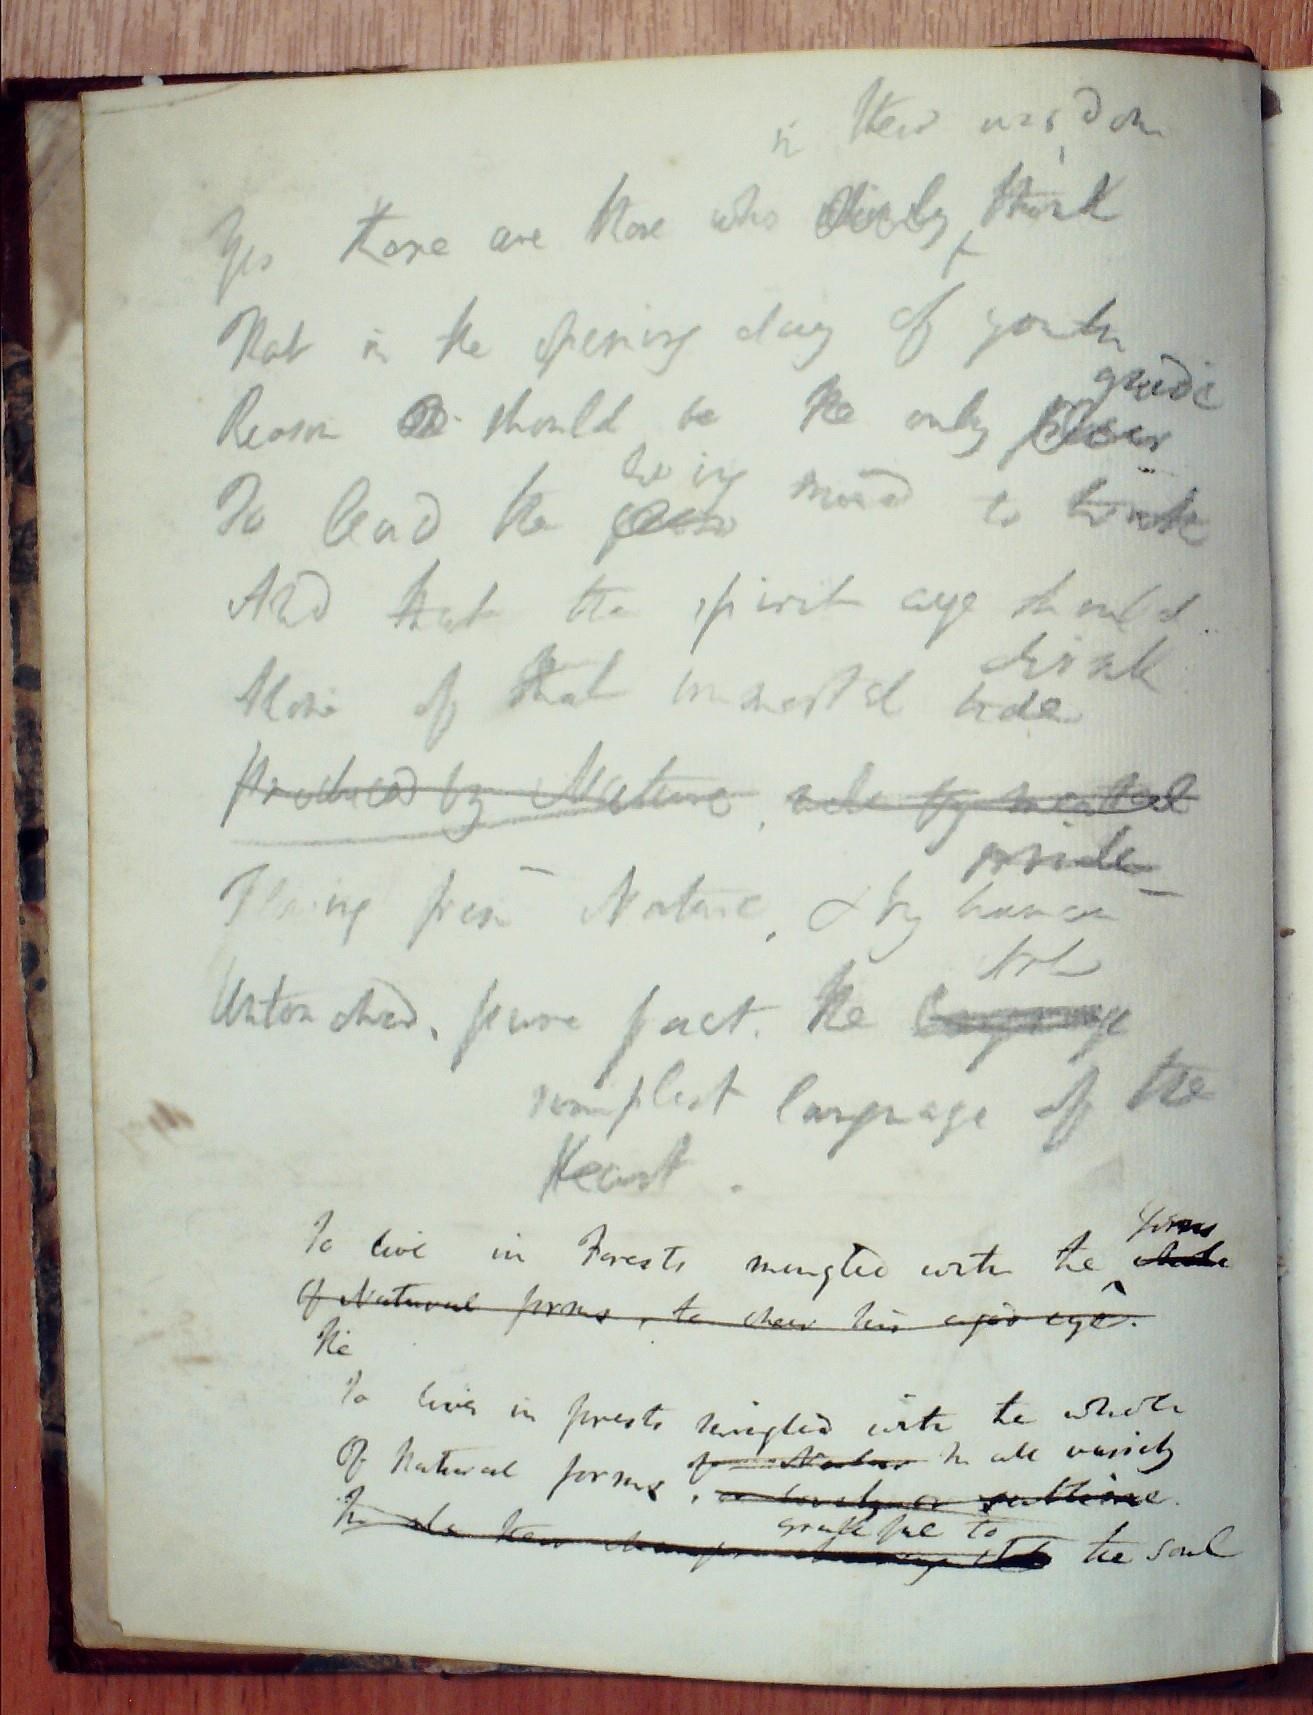 in their wisdom
Yes there are those who think
That in the opening day of youth
guide
Reason should be the only
living
To lead the mind to
And that the spirit aye should
drink
More of that immortal tide
Produced by Nature
pride
Flowing from Nature, & by human
Art
Untouched, pure fact. The language
simplest language of the
Heart.
forms
To live in Forests mingled with the whole
Of Natural forms, to cheer his aged eye.
The
To live in forests mingled with the whole
Of Natural forms, In all variety
lovely or sublime.
grateful to
the soul